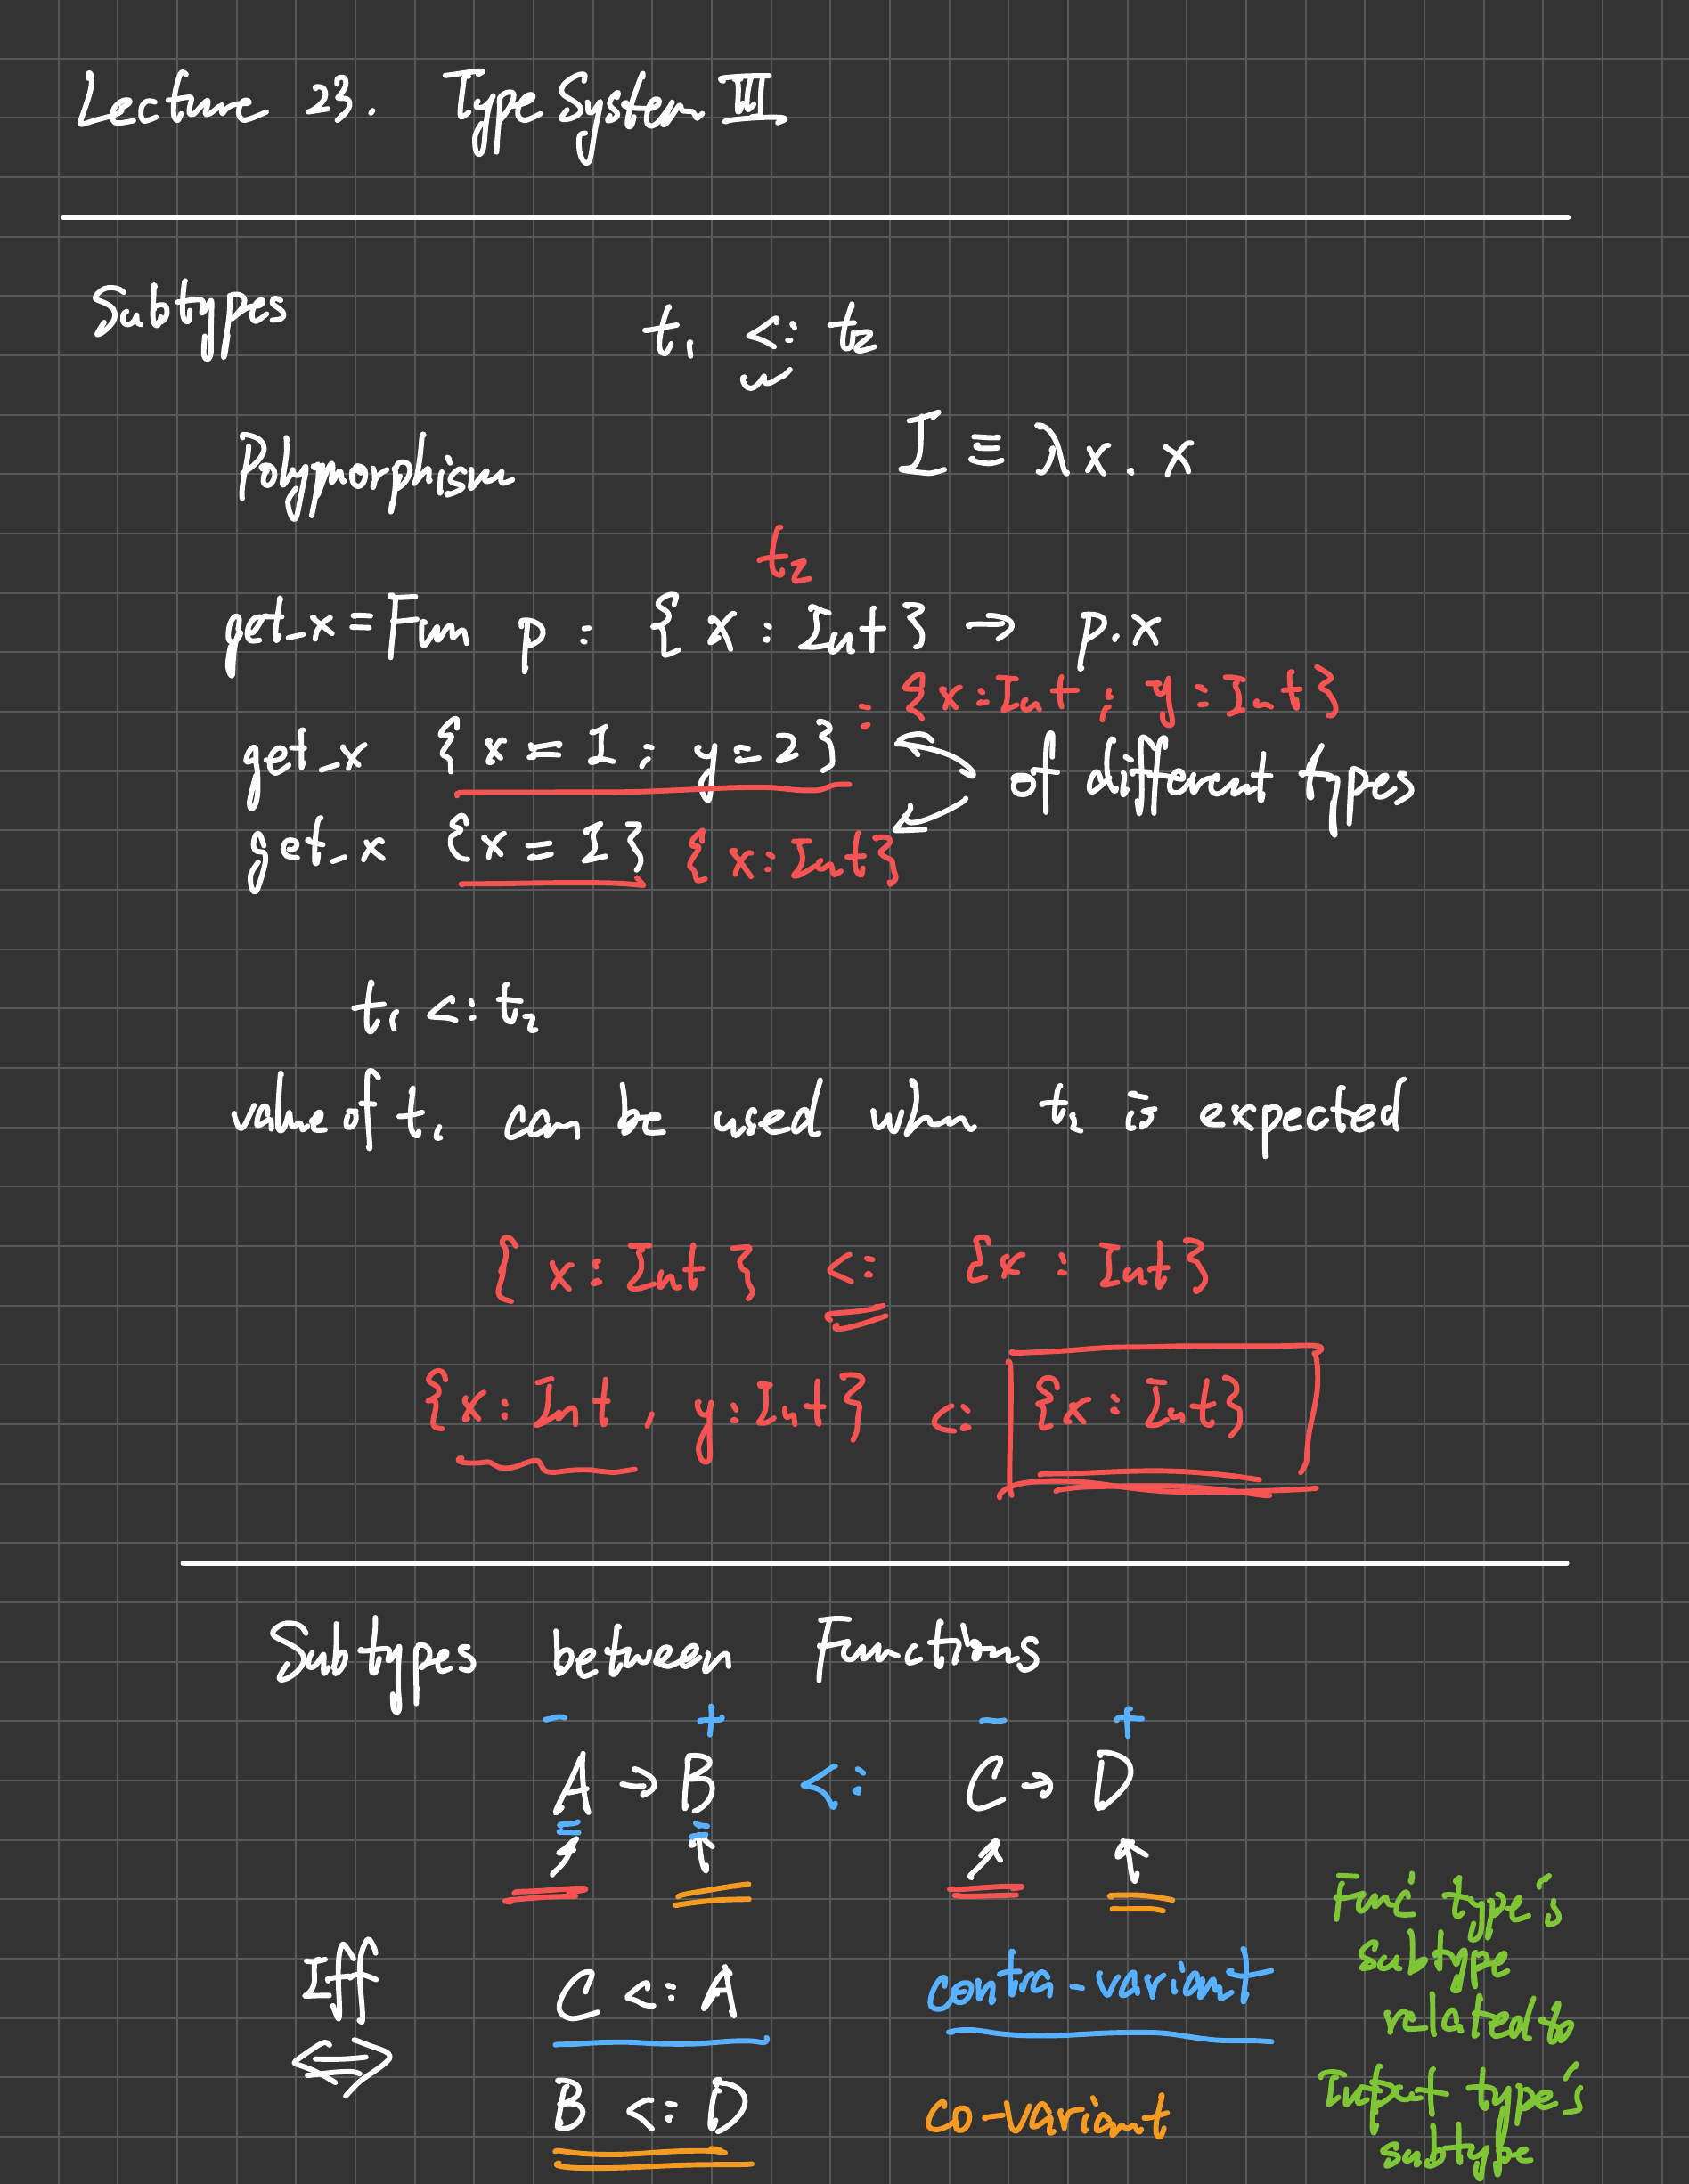 Lecture 23. Type System III
Subtypes
t₁ <: t₂
Polymorphism
I ≡ λx. x
t₂
get_x = Fun p : {x : Int} → p.x
: {x:Int ; y:Int}
get_x {x = 1 ; y = 2}
of different types
get_x {x = 1} {x:Int}
t₁ <: t₂
value of t₁ can be used when t₂ is expected
{x:Int} <: {x:Int}
{x:Int, y:Int} <: {x:Int}
Subtypes between Functions
- + - +
A → B <: C → D
Iff C <: A contra-variant
⟺ B <: D co-variant
Func type's
subtype
related to
Input type's
subtype